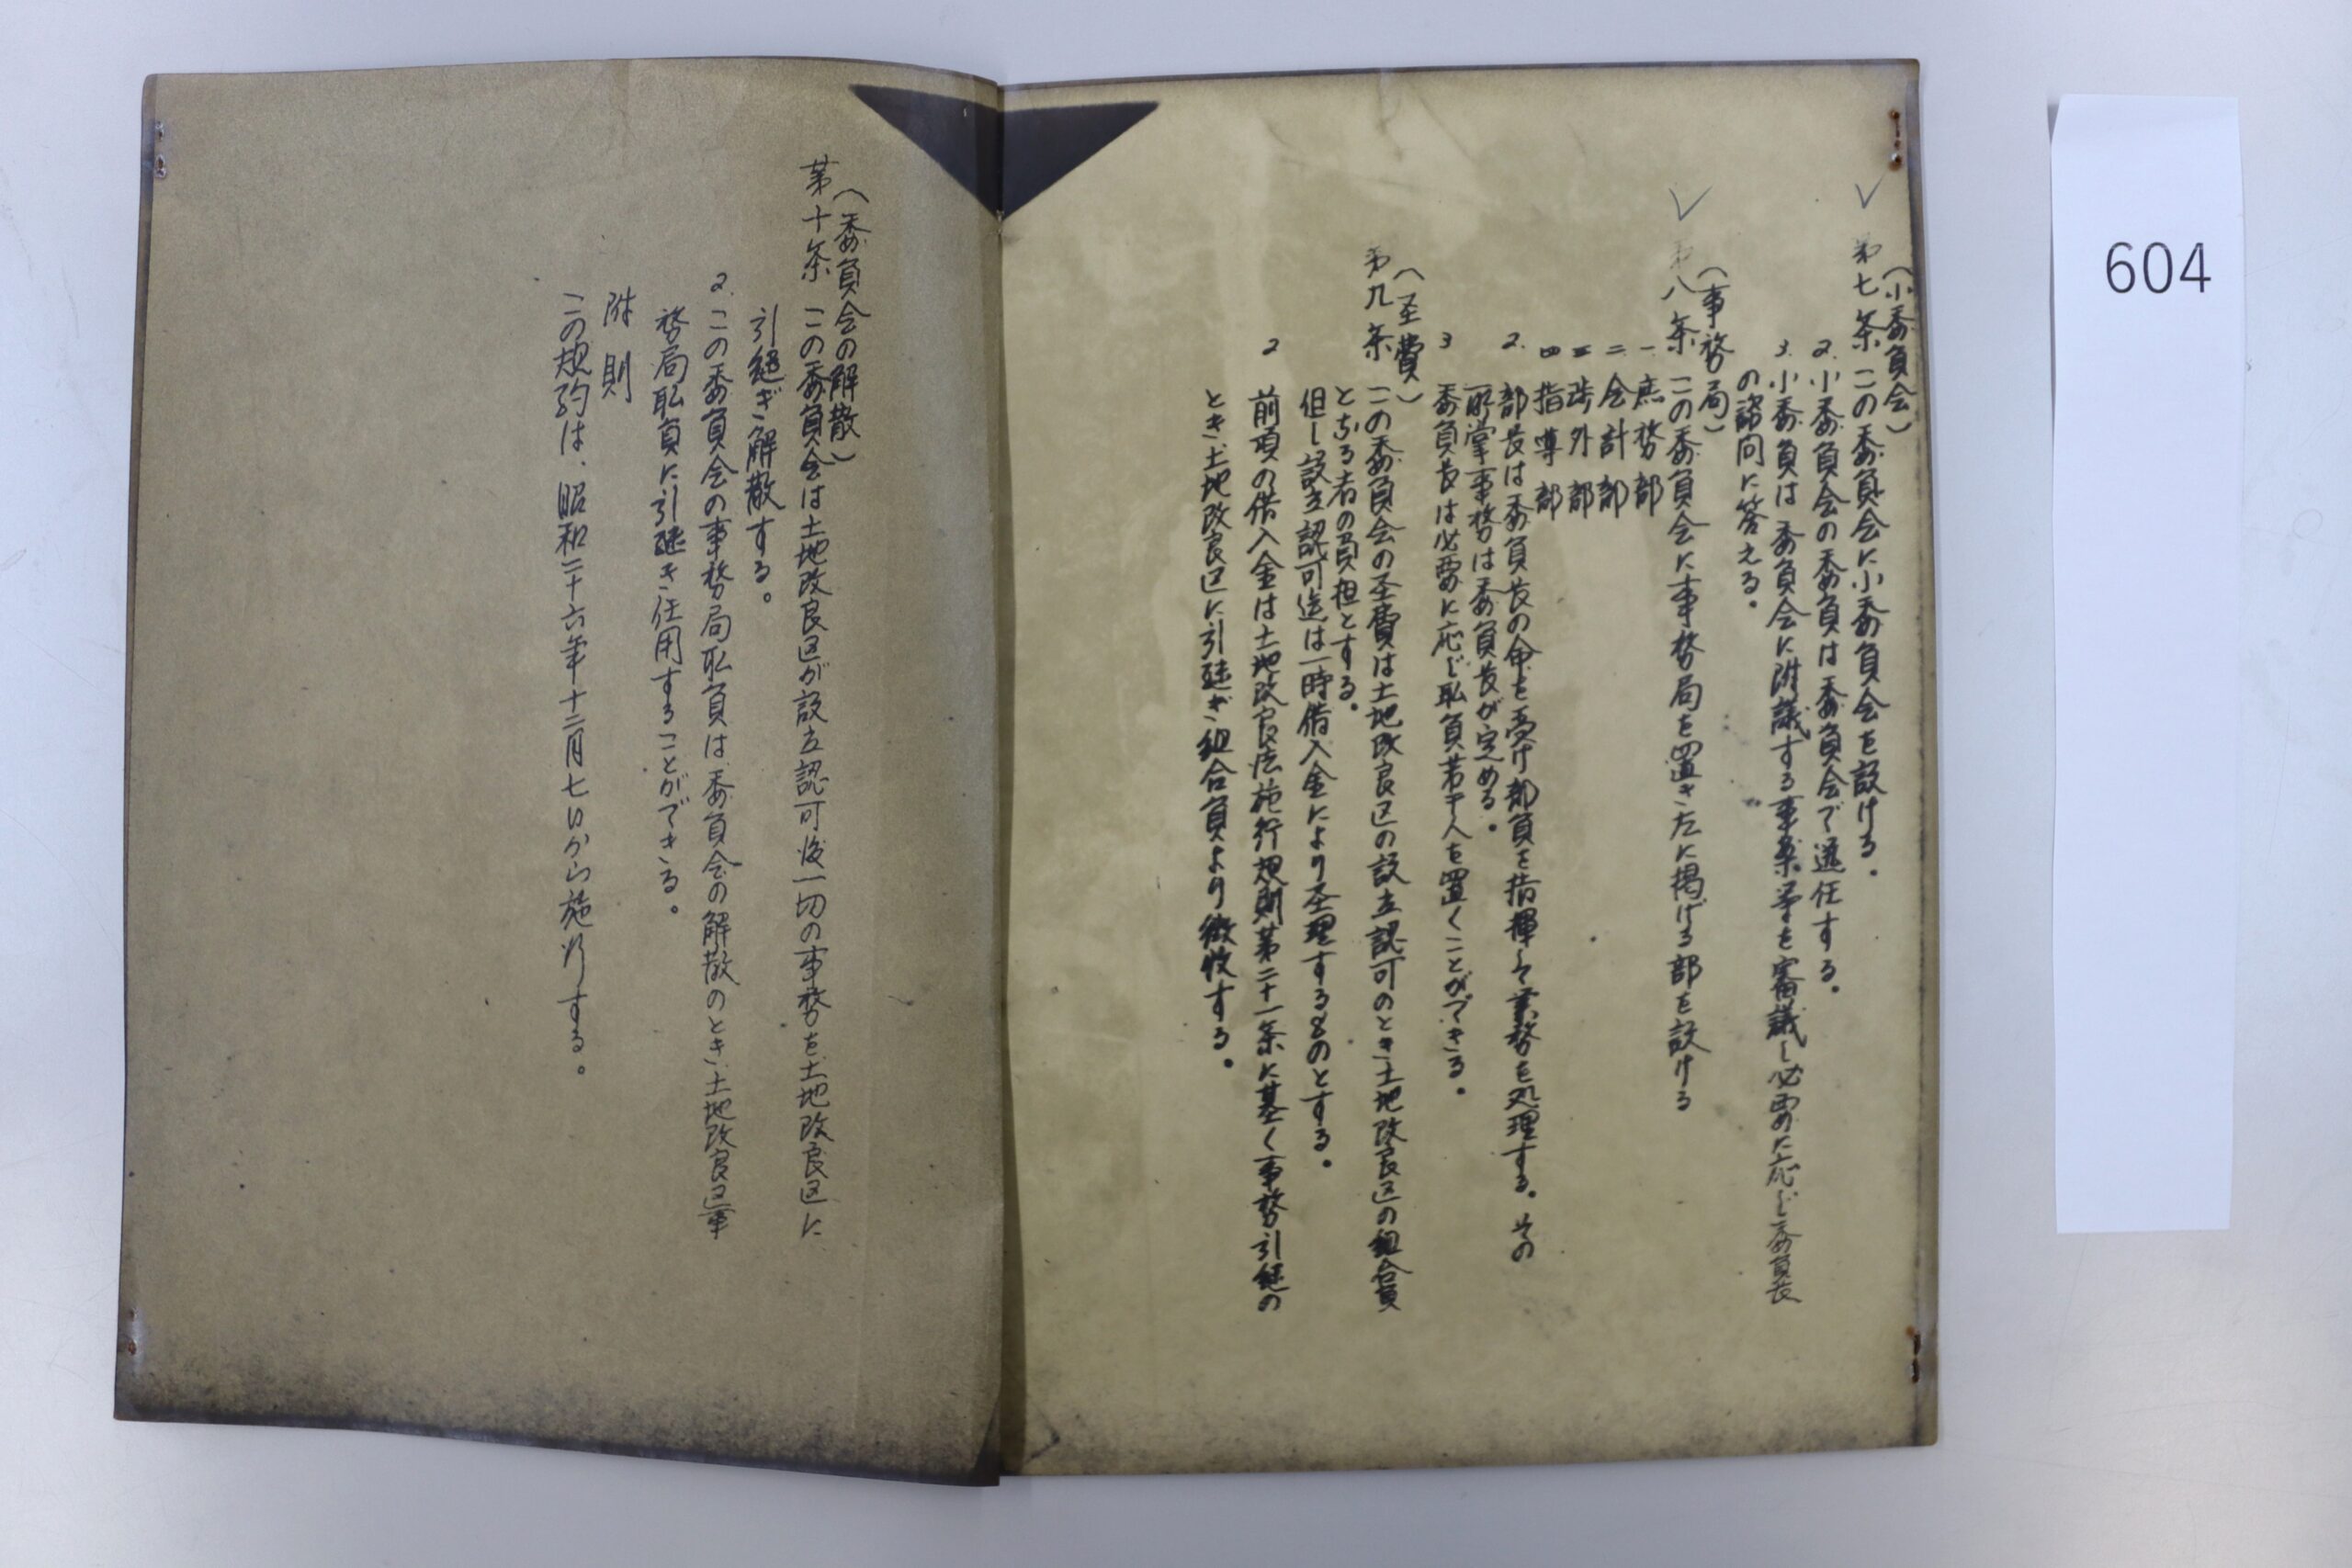 (小委員会)
第七条 この委員会に小委員会を設ける。
2. 小委員会の委員は委員会で選任する。
3. 小委員は委員会に附議する事業等を審議し必要に応じ委員長
の諮問に答える。
(事務局)
第八条 この委員会に事務局を置き左に掲げる部を設ける
一 庶務部
二 会計部
三 渉外部
四 指導部
2. 部長は委員長の命を受け部員を指揮して業務を処理する。その
所掌事務は委員長が定める。
3 委員長は必要に応じ職員若干人を置くことができる。
(圣費)
第九条 この委員会の圣費は土地改良区の設立認可のとき土地改良区の組合員
となる者の負担とする。
但し設立認可迄は一時借入金により圣理するものとする。
2 前項の借入金は土地改良法施行規則第二十一条に基く事務引継の
とき、土地改良区に引継ぎ組合員より徴收する。
(委員会の解散)
第十条 この委員会は土地改良区が設立認可後一切の事務を土地改良区に
引継ぎ解散する。
2. この委員会の事務局职員は委員会の解散のとき、土地改良区事
務局职員に引継き任用することができる。
附則
この規約は、昭和二十六年十二月七日から施行する。
604